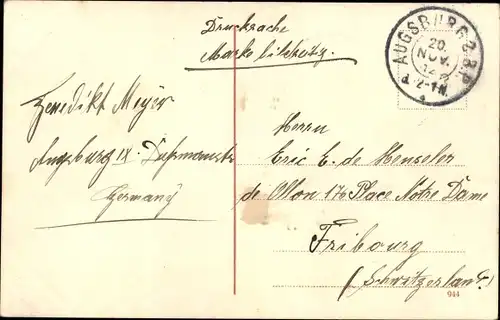 Drucksache
Marke bildseitig.
AUGSBURG 2
20.
NOV.
12
2-3N.
Benedikt Meyer
Augsburg IX.
Germany
Herrn
Eric E. de Henseler
de Ollon 176 Place Notre Dame
Fribourg
(Schwitzerland.)
944